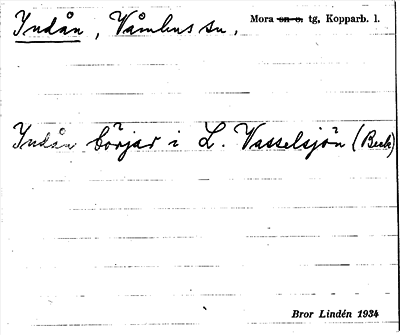 Indån, Våmhus sn, Mora sn o. tg, Kopparb. l.
Indån börjar i L. Vasselsjön (Beck)
Bror Lindén 1934